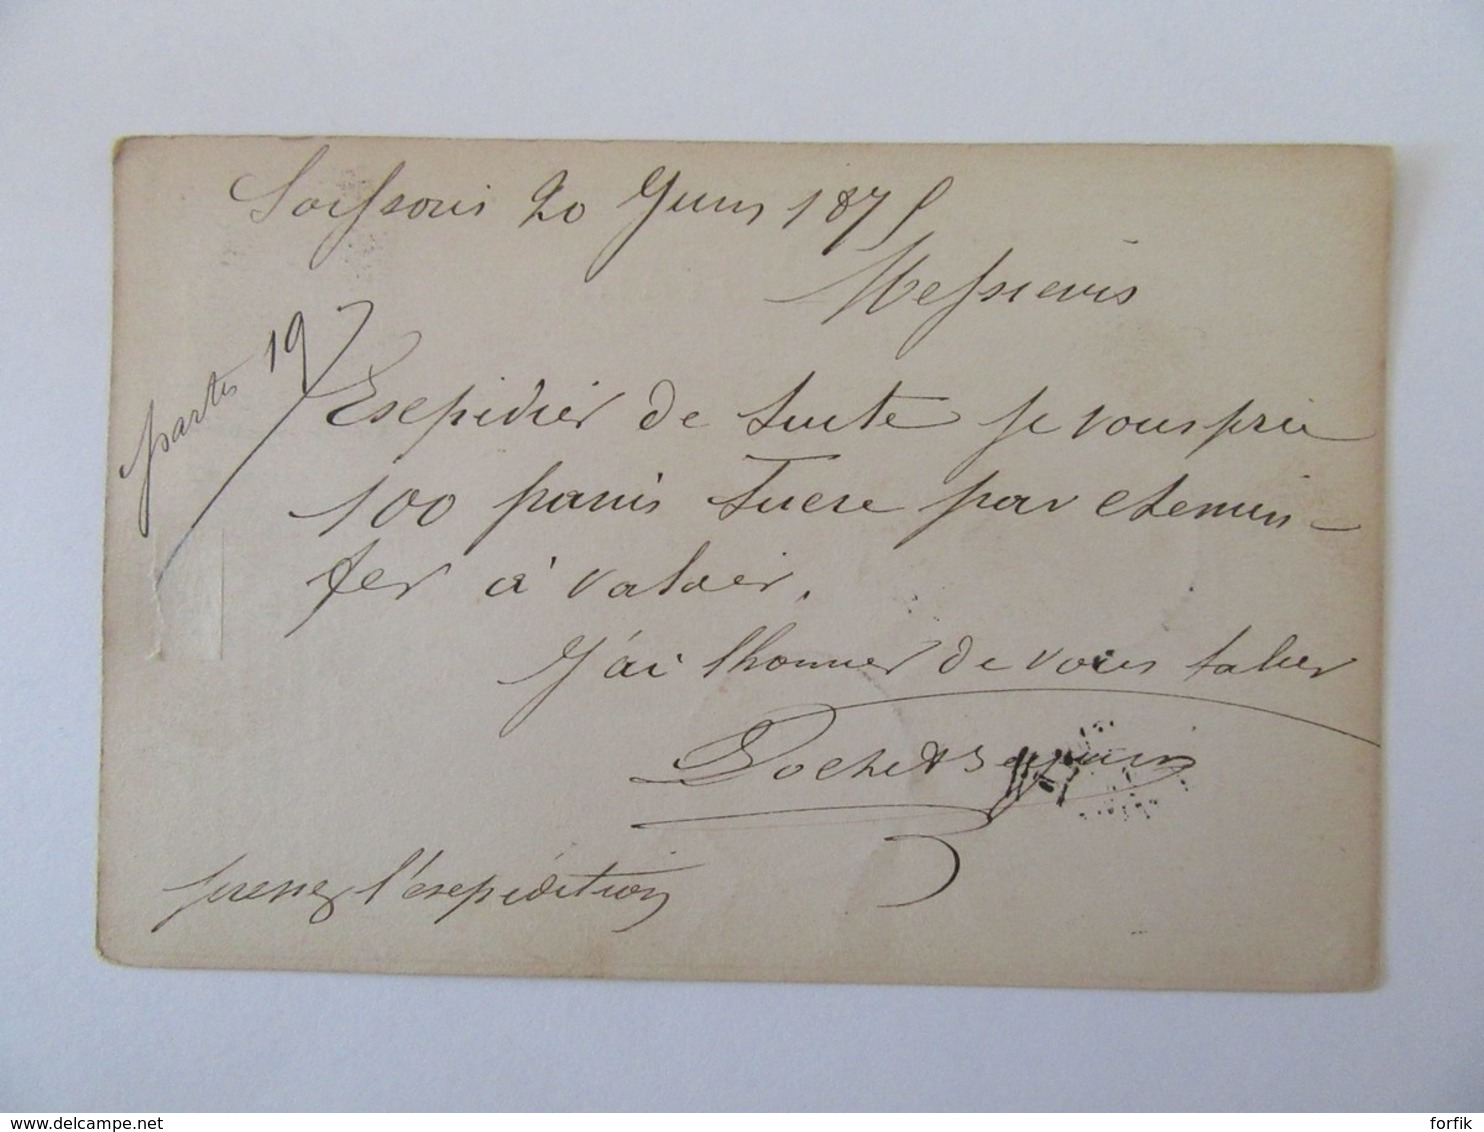 Soissons 20 Juin 1875
Messieurs
partis 19
Exepidier de suite je vous prie
100 pains sucre par chemin-
fer à valoir.
J'ai lhonneur de vous saluer
pressez l'exepédition
delcampe.net
forfik